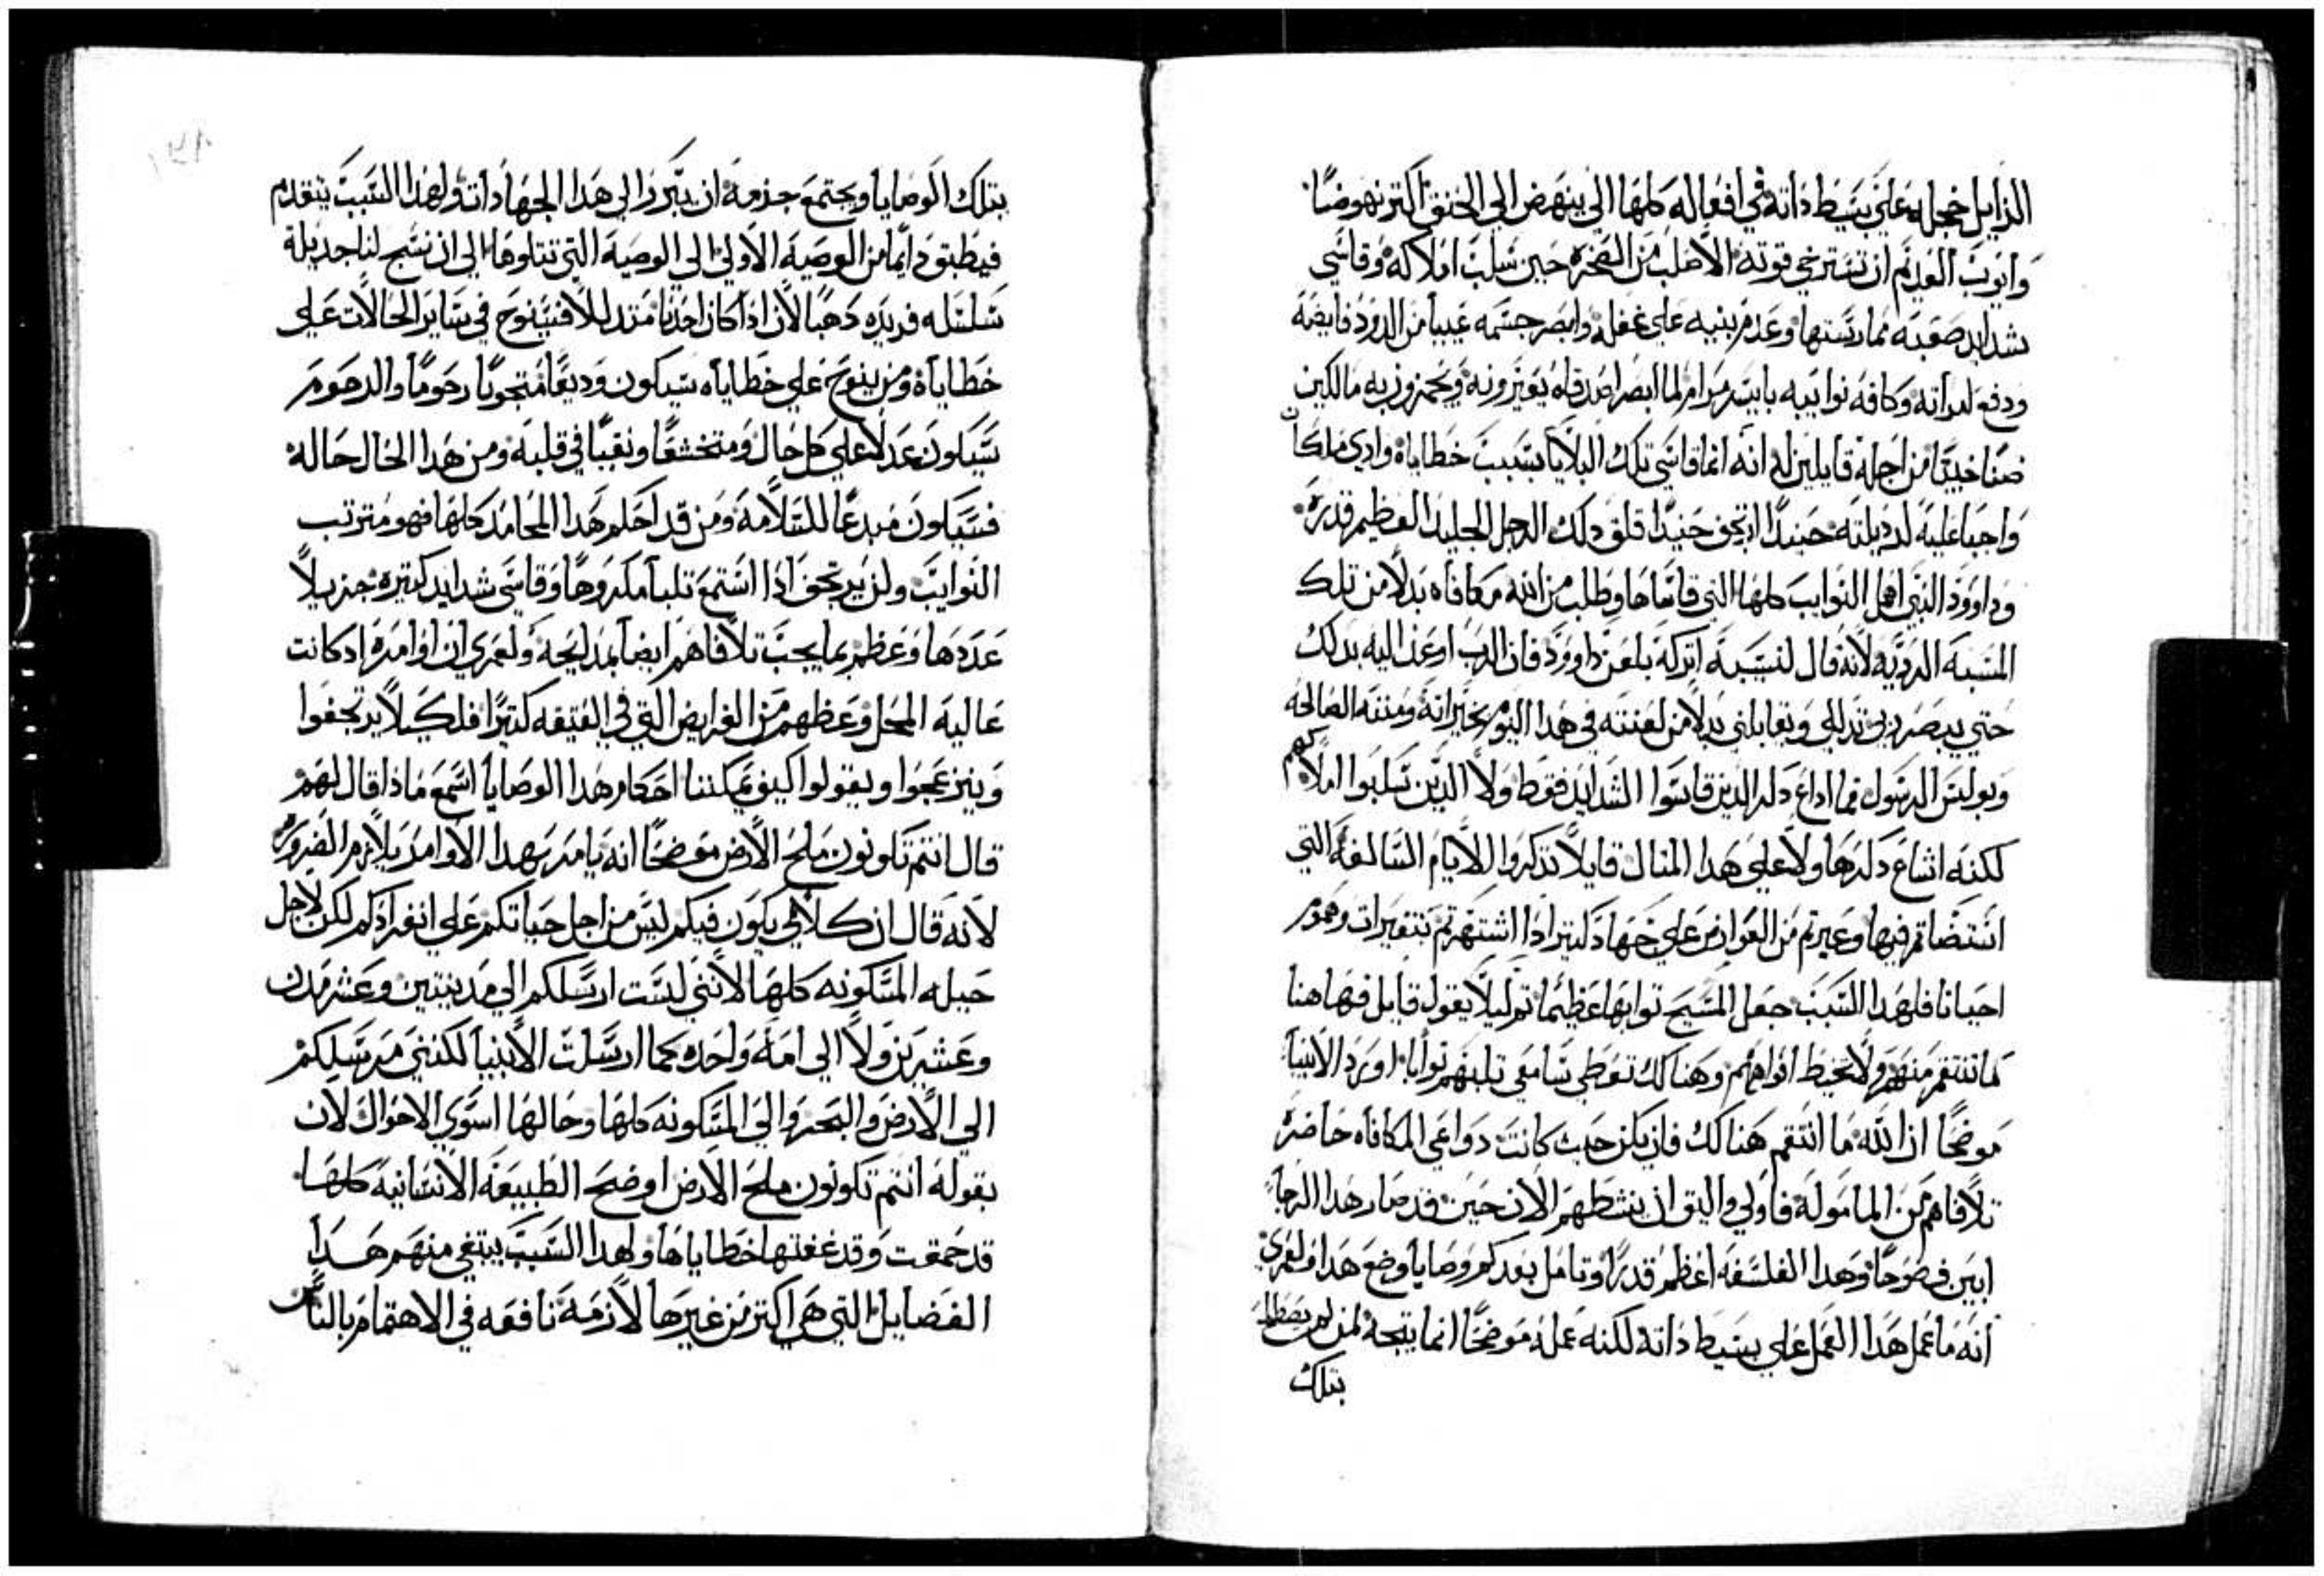 الرذايل خجله علي بسيط ذاته في افعاله كلها الي ينهض الي الخنق اكتر نهوضا
وايوب العديم ان تسترخي قوته الاصلب من الصخره حين سلب املاكه وقاسي
شدايد صعبه ممارستها وعدم بنيه علي غفله وابصر جسمه عيبا من الدود فايضه
ودفع لمراته وكافة نوايبه بايسر مرام لما ابصر اصدقاه يعيرونه ويحمزون به مالكين
ضنا خبيثا من اجله قايلين له انه انما قاسي تلك البلايا بسبب خطاياه وادي ملكات
واجبا عليه لرديلته حينيدا ارتجف حنيدا قلق دلك الرجل الجليل العظيم قدره
وداوود النبي اهمل النوايب كلها التي قاساها وطلب من الله معافاه بدلا من تلك
المسبه الرديه لانه قال لنسيبه اتركه يلعن داوود فان الرب اوعز اليه بدلك
حتي يبصر ربي تدللي ويقابلني بدلا من لعنته في هدا اليوم بخيراته ومننه الصالحه
وبولس الرسول فما اداع دكر الدين قاسوا الشدايد فقط ولا الدين سلبوا املاكهم
لكنه اشاع دكرها ولا علي هدا المثال قايلا تدكروا للايام السالفه التي
استضاتم فيها وعبرتم من العوارض علي جهاد كتير ادا اشتهرتم بتعييرات وهموم
احيانا فلهدا السبب جعل المسيح توابها عظيما تم ليلا يقول قايل فها هنا
لما تنتقم منهم ولا تخيط افواههم وهنالك تعطي سامعي تلبهم توابا اورد الانبيا
موضحا ان الله ما انتقم هنالك فان يكن حيث كانت دواعي المكافاه حاضره
تلافاهم من المامولة فاولي واليق ان ينشطهم الان حين قد صار هدا الرجا
ابين فصوحا وهدا الفلسفه اعظم قدرا وتامل بعد كم وصايا وضع هدا فلعمري
انه ما عمل هدا العمل علي بسيط داته لكنه عمله موضحا انما يتجه لمن لم يضطلع
بتلك
بتلك الوصايا ويجتمع جدمه ان يبرز الي هدا الجهاداته ولهدا السبب يتقدم
فيطبق دايما من الوصيه الاولي الي الوصيه التي تتلوها الي ان نسج لنا جديلة
سلسله فريده دهبا لان ادا كان احدنا متدللا فسينوح في ساير الحالات علي
خطاياه ومن ينوح علي خطاياه سيكون وديعا متحوبا رحوما والرحوم
سيكون عدلا علي كل حال ومتخشعا ونقيا في قلبه ومن هدا الحال حاله
فسيكون مبدعا للسلامه ومن قد احكم هدا المحامد كلها فهو مترتب
النوايب ولن يرتجف ادا استمع تلبا مكروها وقاسي شدايد كتيره جزيلا
عددها وعظهم بما يجب تلافاهم ايضا بمدايحه ولعمري ان اوامره اد كانت
عالية المحل وعظهم من الفرايض التي في العتيقه كتيرا فلكيلا يرتجفوا
وينزعجوا ويقولوا كيف يمكننا احكام هدا الوصايا اسمع ماذا قال لهم
قال انتم تكونون ملح الارض موضحا انه يامر بهدا الاوامر بلازم الضروره
لانه قال ان كلامي يكون فيكم ليس من اجل حياتكم علي انفرادكم لكن لاجل
حيله المسكونه كلها لانني لست ارسلكم الي مدينتين وعشر مدن
وعشرين ولا الي امه واحده كما ارسلت الانبيا لكنني مرسلكم
الي الارض والبحر والي المسكونه كلها وحالها اسوي الاحوال لان
بقوله انتم تكونون ملح الارض اوضح الطبيعة الانسانية كلها
قد حمقت وقد عفتها خطاياها ولهدا السبب يبتغي منهم هدا
الفضايل التي هي اكتر من غيرها لازمة نافعه في الاهتمام بالناس